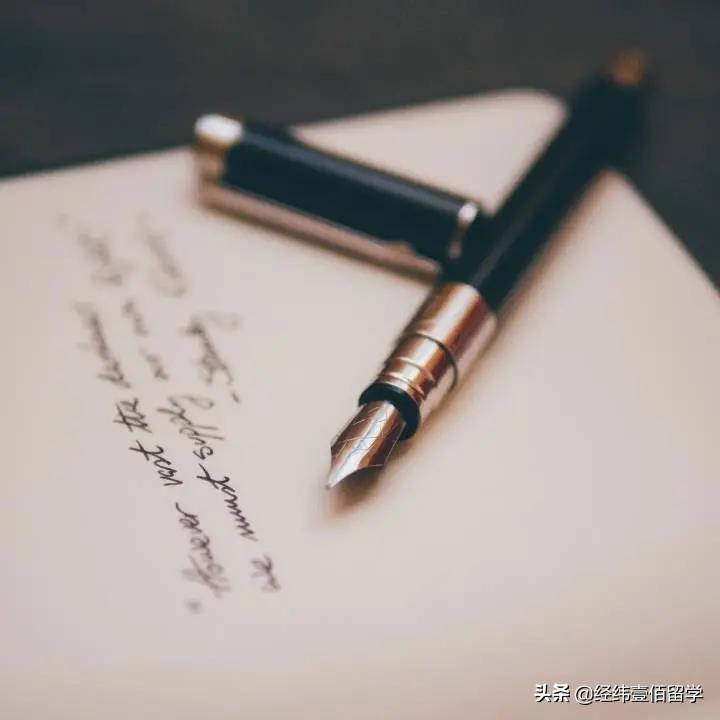 "However vast the
we must supply our own
- Stanley
头条 @经纬壹佰留学